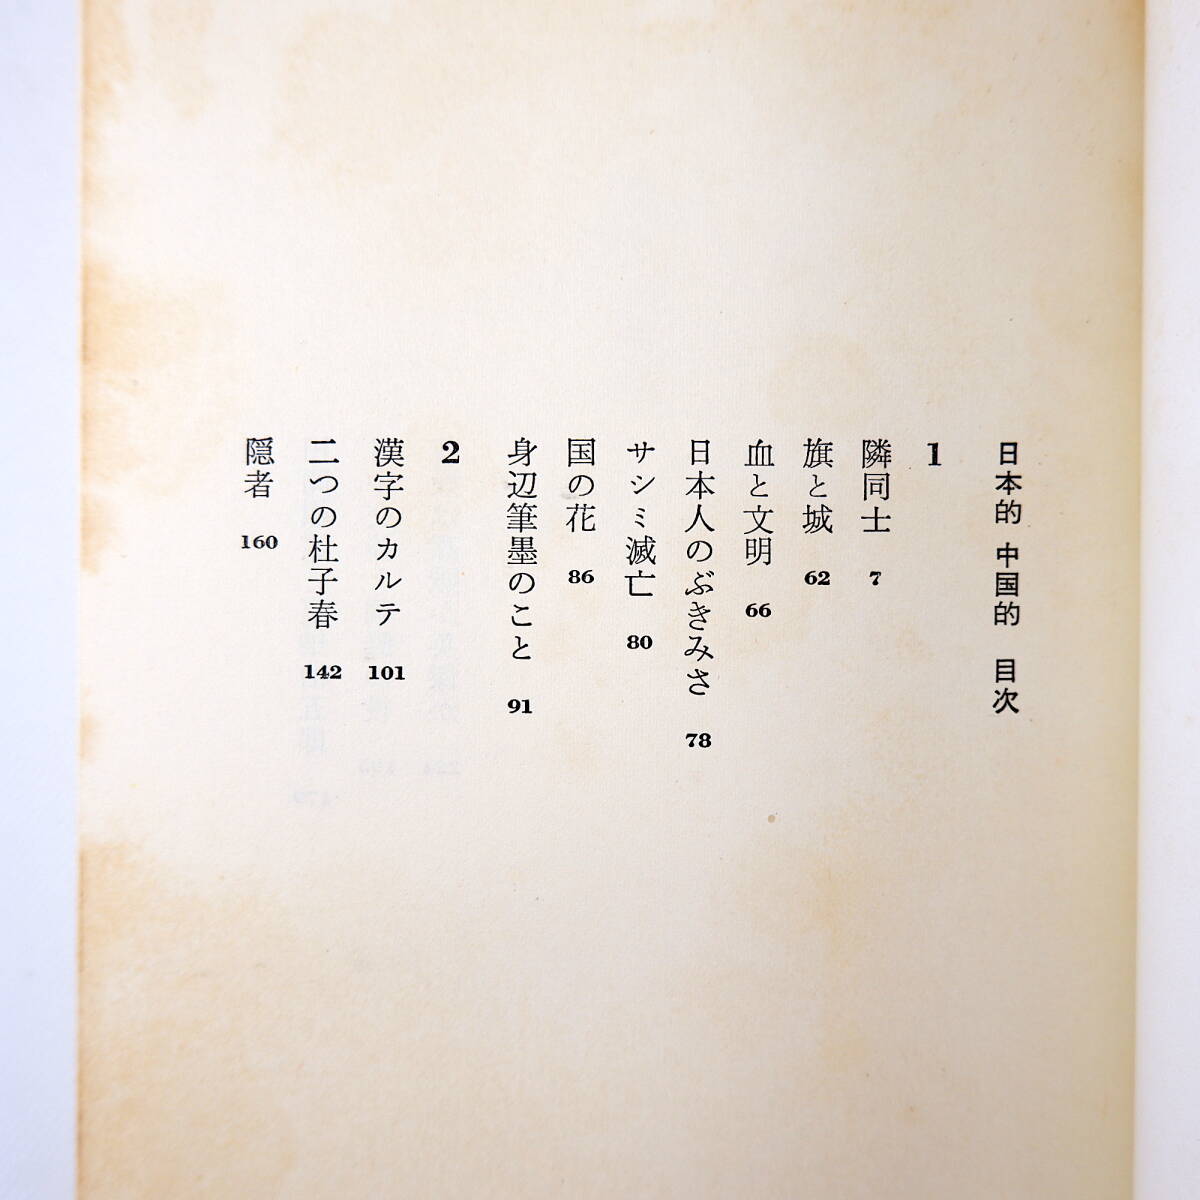 日本的 中国的 目次
1
隣同士 7
旗と城 62
血と文明 66
日本人のぶきみさ 78
サシミ滅亡 80
国の花 86
身辺筆墨のこと 91
2
漢字のカルテ 101
二つの杜子春 142
隠者 160